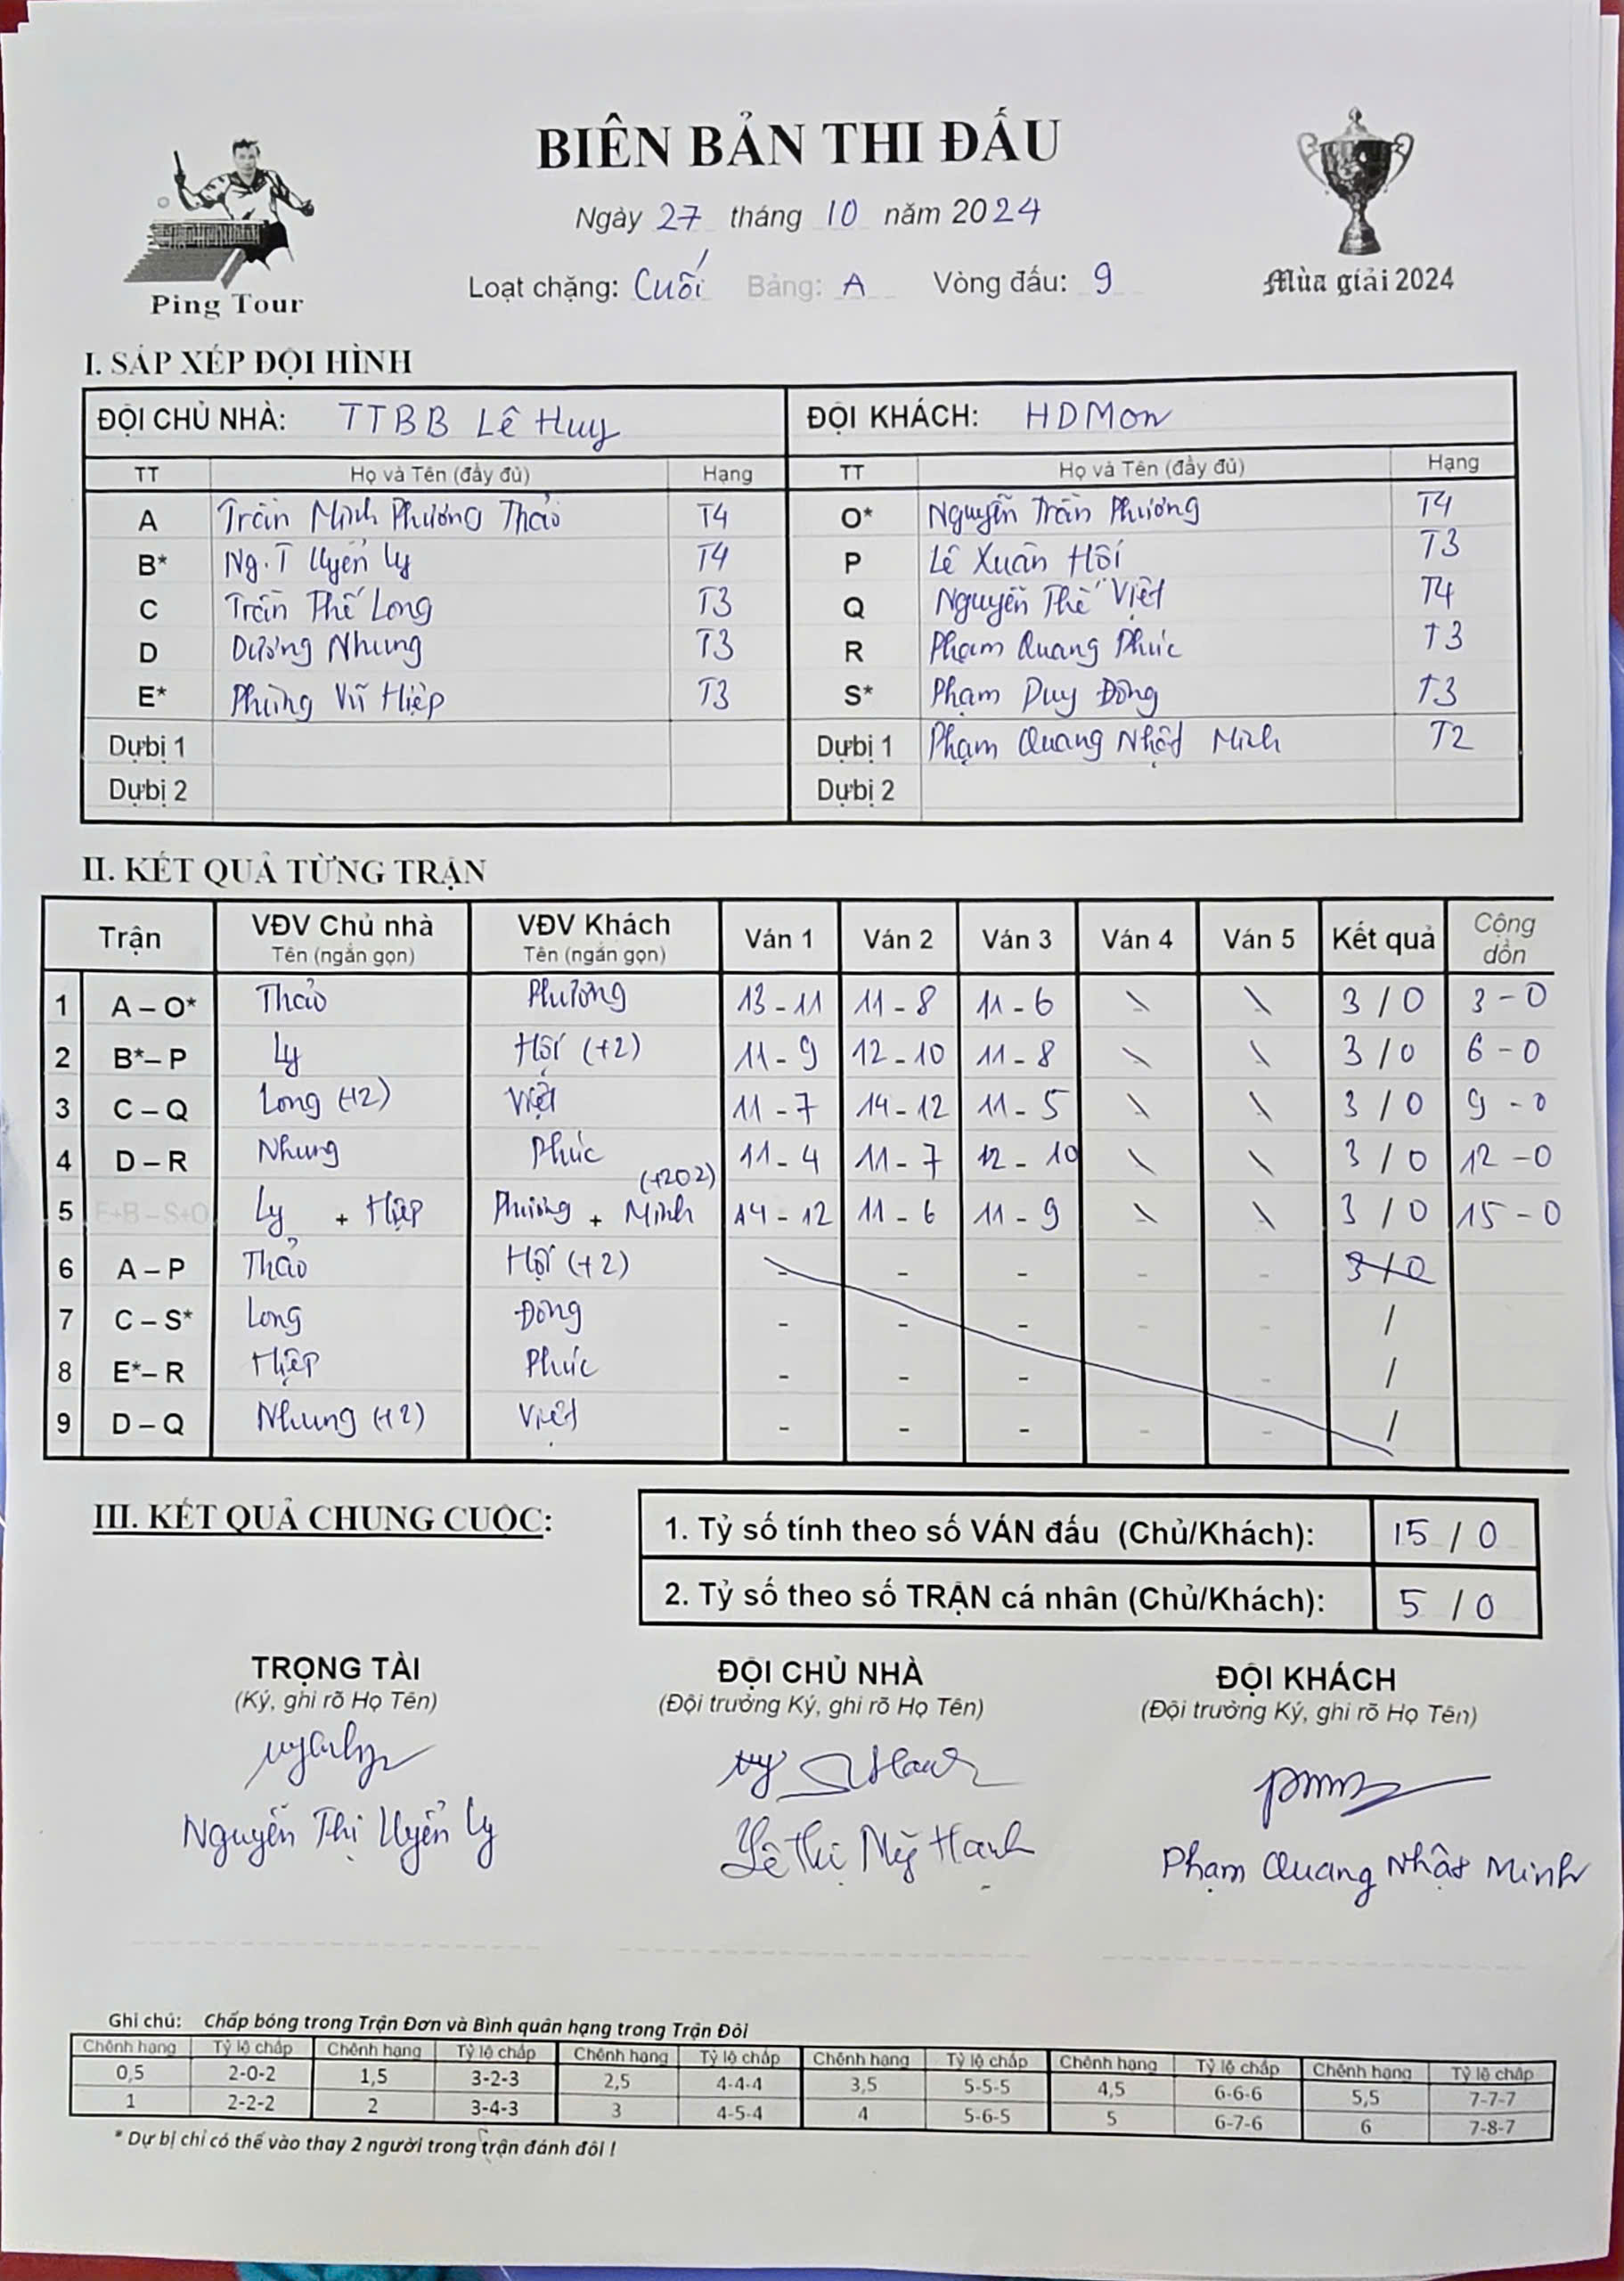 BIÊN BẢN THI ĐẤU
Ngày 27 tháng 10 năm 2024
Loạt chặng: Cuối Bảng: A Vòng đấu: 9
Ping Tour
Mùa giải 2024
I. SẮP XẾP ĐỘI HÌNH
ĐỘI CHỦ NHÀ: TTBB Lê Huy ĐỘI KHÁCH: HDMon
TT Họ và Tên (đầy đủ) Hạng TT Họ và Tên (đầy đủ) Hạng
A Trần Minh Phương Thảo T4 O* Nguyễn Trần Phương T4
B* Ng.T Uyển Ly T4 P Lê Xuân Hội T3
C Trần Thế Long T3 Q Nguyễn Thế Việt T4
D Dương Nhung T3 R Phạm Quang Phúc T3
E* Phùng Vũ Hiệp T3 S* Phạm Duy Đông T3
Dự bị 1 Dự bị 1 Phạm Quang Nhật Minh T2
Dự bị 2 Dự bị 2
II. KẾT QUẢ TỪNG TRẬN
Trận VĐV Chủ nhà Tên (ngắn gọn) VĐV Khách Tên (ngắn gọn) Ván 1 Ván 2 Ván 3 Ván 4 Ván 5 Kết quả Cộng dồn
1 A – O* Thảo Phương 13 - 11 11 - 8 11 - 6 \ \ 3 / 0 3 - 0
2 B* – P Ly Hội (+2) 11 - 9 12 - 10 11 - 8 \ \ 3 / 0 6 - 0
3 C – Q Long (+2) Việt 11 - 7 14 - 12 11 - 5 \ \ 3 / 0 9 - 0
4 D – R Nhung Phúc 11 - 4 11 - 7 12 - 10 \ \ 3 / 0 12 - 0
5 E+B – S+O Ly + Hiệp Phương + Minh (+202) 14 - 12 11 - 6 11 - 9 \ \ 3 / 0 15 - 0
6 A – P Thảo Hội (+2) - - - - - 3 / 0
7 C – S* Long Đông - - - - - /
8 E* – R Hiệp Phúc - - - - /
9 D – Q Nhung (+2) Việt - - - - - /
III. KẾT QUẢ CHUNG CUỘC:
1. Tỷ số tính theo số VÁN đấu (Chủ/Khách): 15 / 0
2. Tỷ số theo số TRẬN cá nhân (Chủ/Khách): 5 / 0
TRỌNG TÀI ĐỘI CHỦ NHÀ ĐỘI KHÁCH
(Ký, ghi rõ Họ Tên) (Đội trưởng Ký, ghi rõ Họ Tên) (Đội trưởng Ký, ghi rõ Họ Tên)
Nguyễn Thị Uyển Ly Lê Thị Mỹ Hạnh Phạm Quang Nhật Minh
Ghi chú: Chấp bóng trong Trận Đơn và Bình quân hạng trong Trận Đôi
Chênh hạng Tỷ lệ chấp Chênh hạng Tỷ lệ chấp Chênh hạng Tỷ lệ chấp Chênh hạng Tỷ lệ chấp Chênh hạng Tỷ lệ chấp Chênh hạng Tỷ lệ chấp
0,5 2-0-2 1,5 3-2-3 2,5 4-4-4 3,5 5-5-5 4,5 6-6-6 5,5 7-7-7
1 2-2-2 2 3-4-3 3 4-5-4 4 5-6-5 5 6-7-6 6 7-8-7
* Dự bị chỉ có thể vào thay 2 người trong trận đánh đôi !